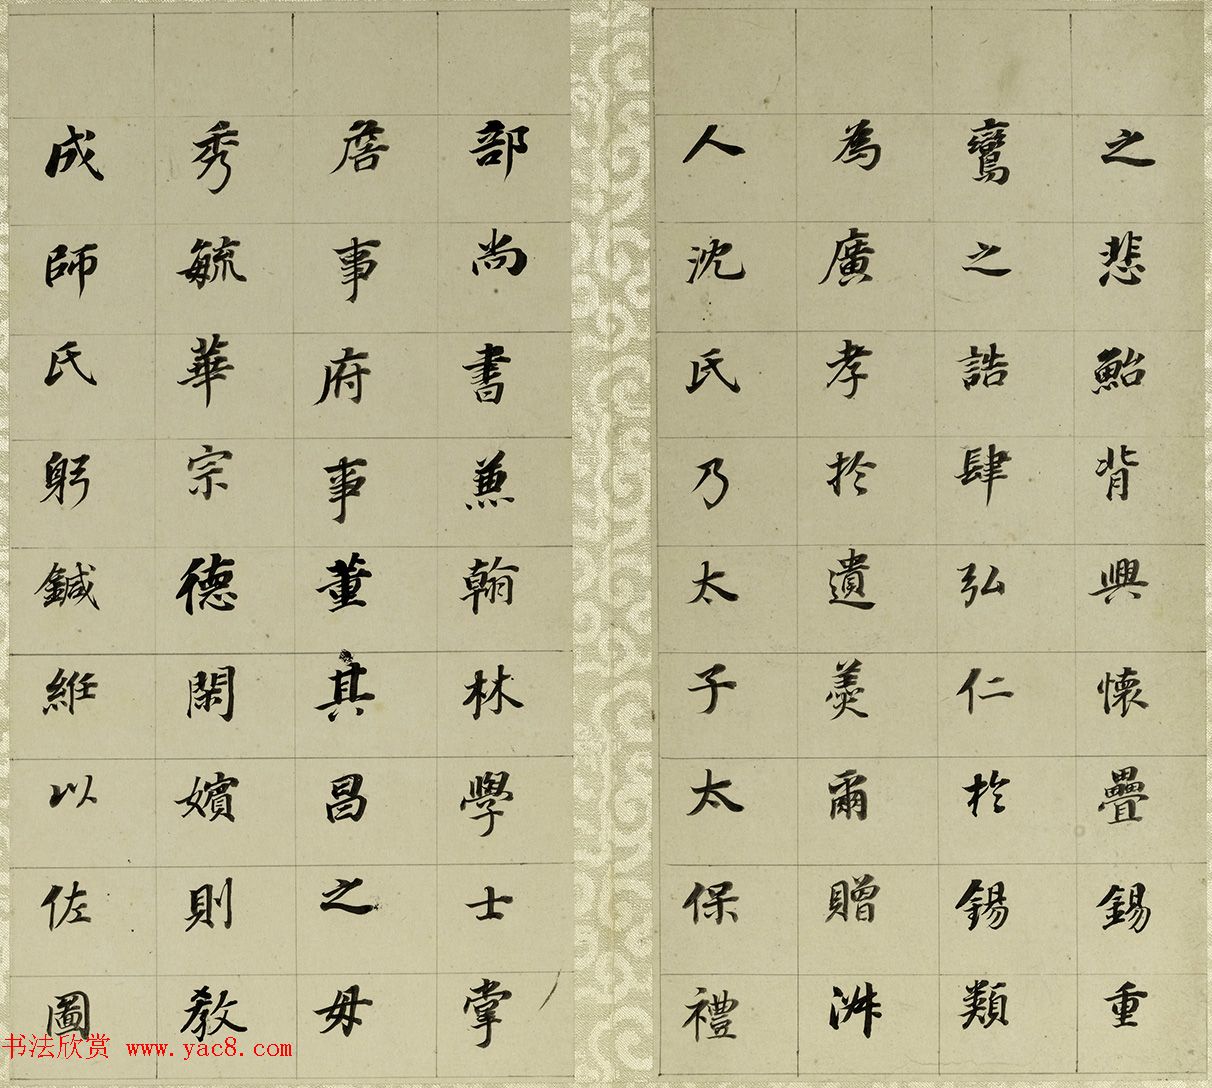 之悲鮐背興懷疊錫重
鸞之誥肆弘仁於錫類
為廣孝於遺羹爾贈淑
人沈氏乃太子太保禮
部尚書兼翰林學士掌
詹事府事董其昌之母
秀毓華宗德閑嬪則教
成師氏躬鍼紝以佐圖
书法欣赏 www.yac8.com